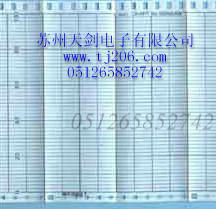 苏州天剑电子有限公司
www.tj206.com
051265852742
051265852742